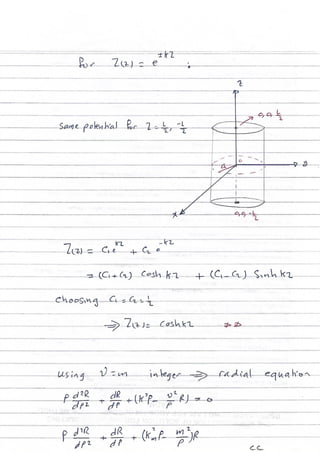 for Z(z) = e^{±kz} :
z
0,0,L/2
Same potential for z = L/2, -L/2
a
0,0,-L/2
x
Z(z) = C₁e^{kz} + C₂e^{-kz}
= (C₁+C₂) cosh kz + (C₁-C₂) Sinh kz
choosing C₁ = C₂ = ½
⇒ Z(z) = cosh kz
using ν = m integer ⇒ radial equation
ρ d²R/dρ² + dR/dρ + (k²ρ - ν²/ρ R) = 0
ρ d²R/dρ² + dR/dρ + (k²ₘρ - m²/ρ)R